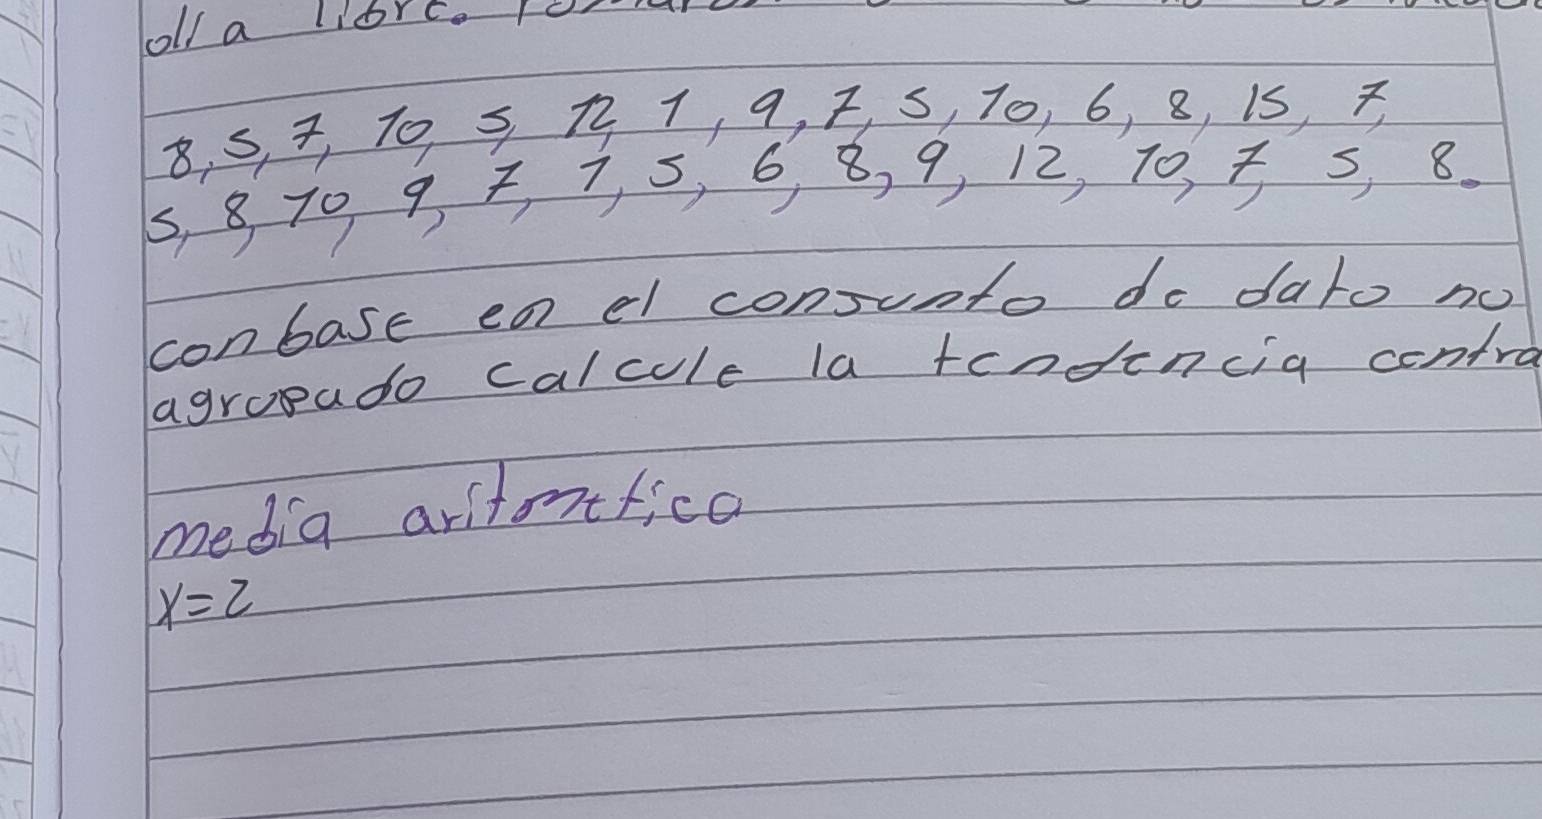 olla libre.
8, 5, 7, 10, 5, 12, 1, 9, 7, 5, 10, 6, 8, 15, 7,
5, 8, 10, 9, 7, 1, 5, 6, 8, 9, 12, 10, 7, 5, 8.
con base en el consunto de dato no
agrupado calcule la tendencia centra
media aritmetica
x=2